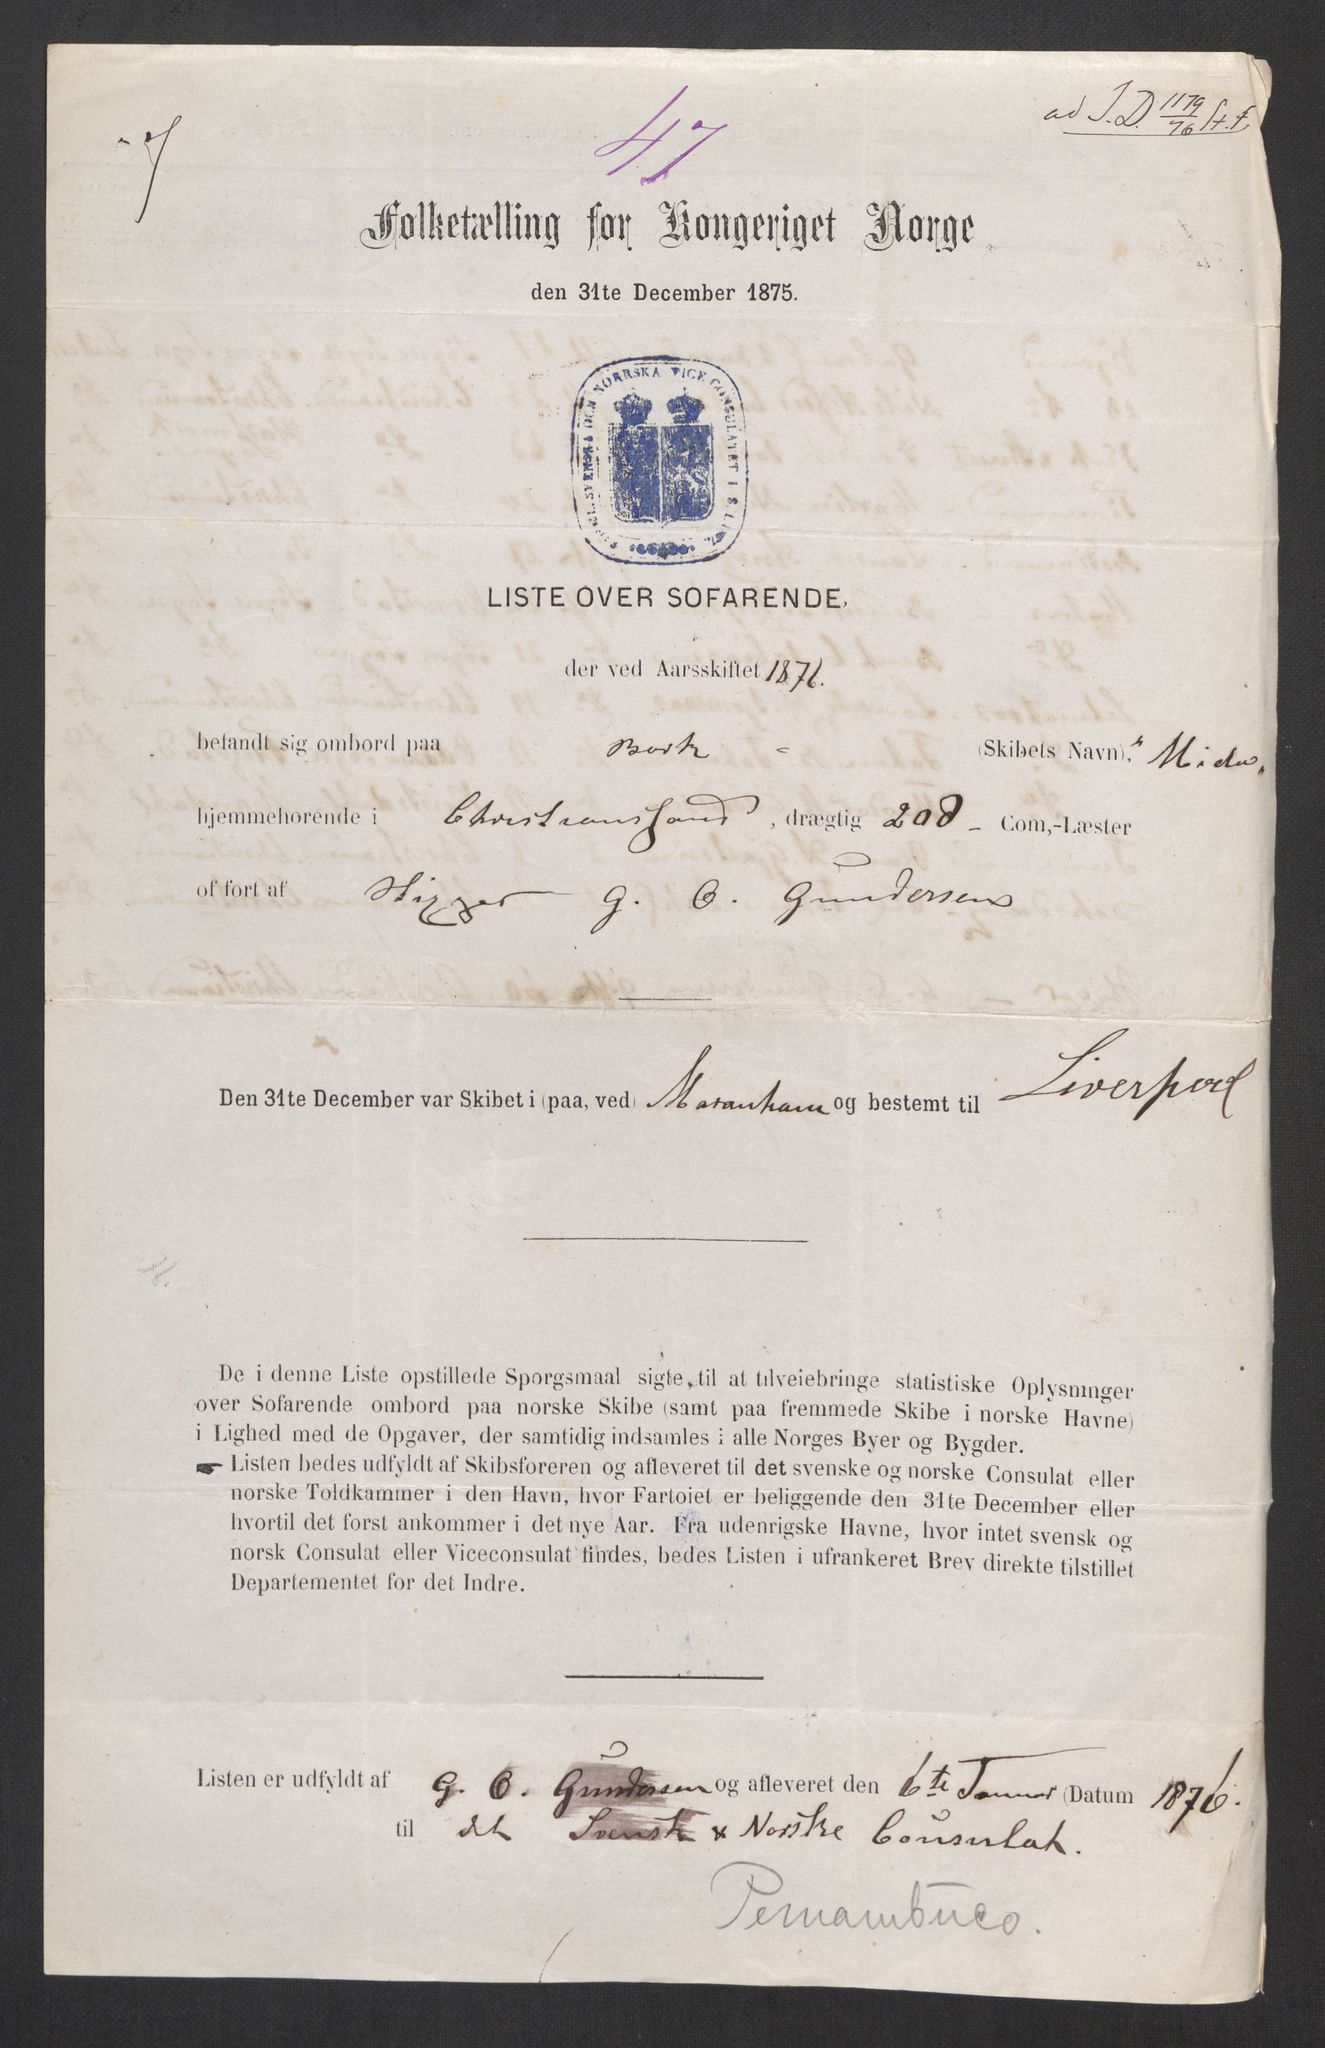 47
ad J.D. 1179/76 St. f
Folketælling for Kongeriget Norge
den 31te December 1875.
SVENSKA OCH NORRSKA VICE CONSULATET I S. LUIZ.
LISTE OVER SOFARENDE,
der ved Aarsskiftet 1876.
befandt sig ombord paa Bark - (Skibets Navn), "Mida"
hjemmehorende i Christianssand, drægtig 208 - Com,-Læster
of fort af Skipper G. C. Gundersen
Den 31te December var Skibet i (paa, ved) Maranham og bestemt til Liverpool
De i denne Liste opstillede Sporgsmaal sigte til at tilveiebringe statistiske Oplysninger
over Sofarende ombord paa norske Skibe (samt paa fremmede Skibe i norske Havne)
i Lighed med de Opgaver, der samtidig indsamles i alle Norges Byer og Bygder.
Listen bedes udfyldt af Skibsforeren og afleveret til det svenske og norske Consulat eller
norske Toldkammer i den Havn, hvor Fartoiet er beliggende den 31te December eller
hvortil det forst ankommer i det nye Aar. Fra udenrigske Havne, hvor intet svensk og
norsk Consulat eller Viceconsulat findes, bedes Listen i ufrankeret Brev direkte tilstillet
Departementet for det Indre.
Listen er udfyldt af G. C. Gundersen og afleveret den 6te Januar (Datum 1876.
til det Svensk & Norske Consulat.
Pernambuco.